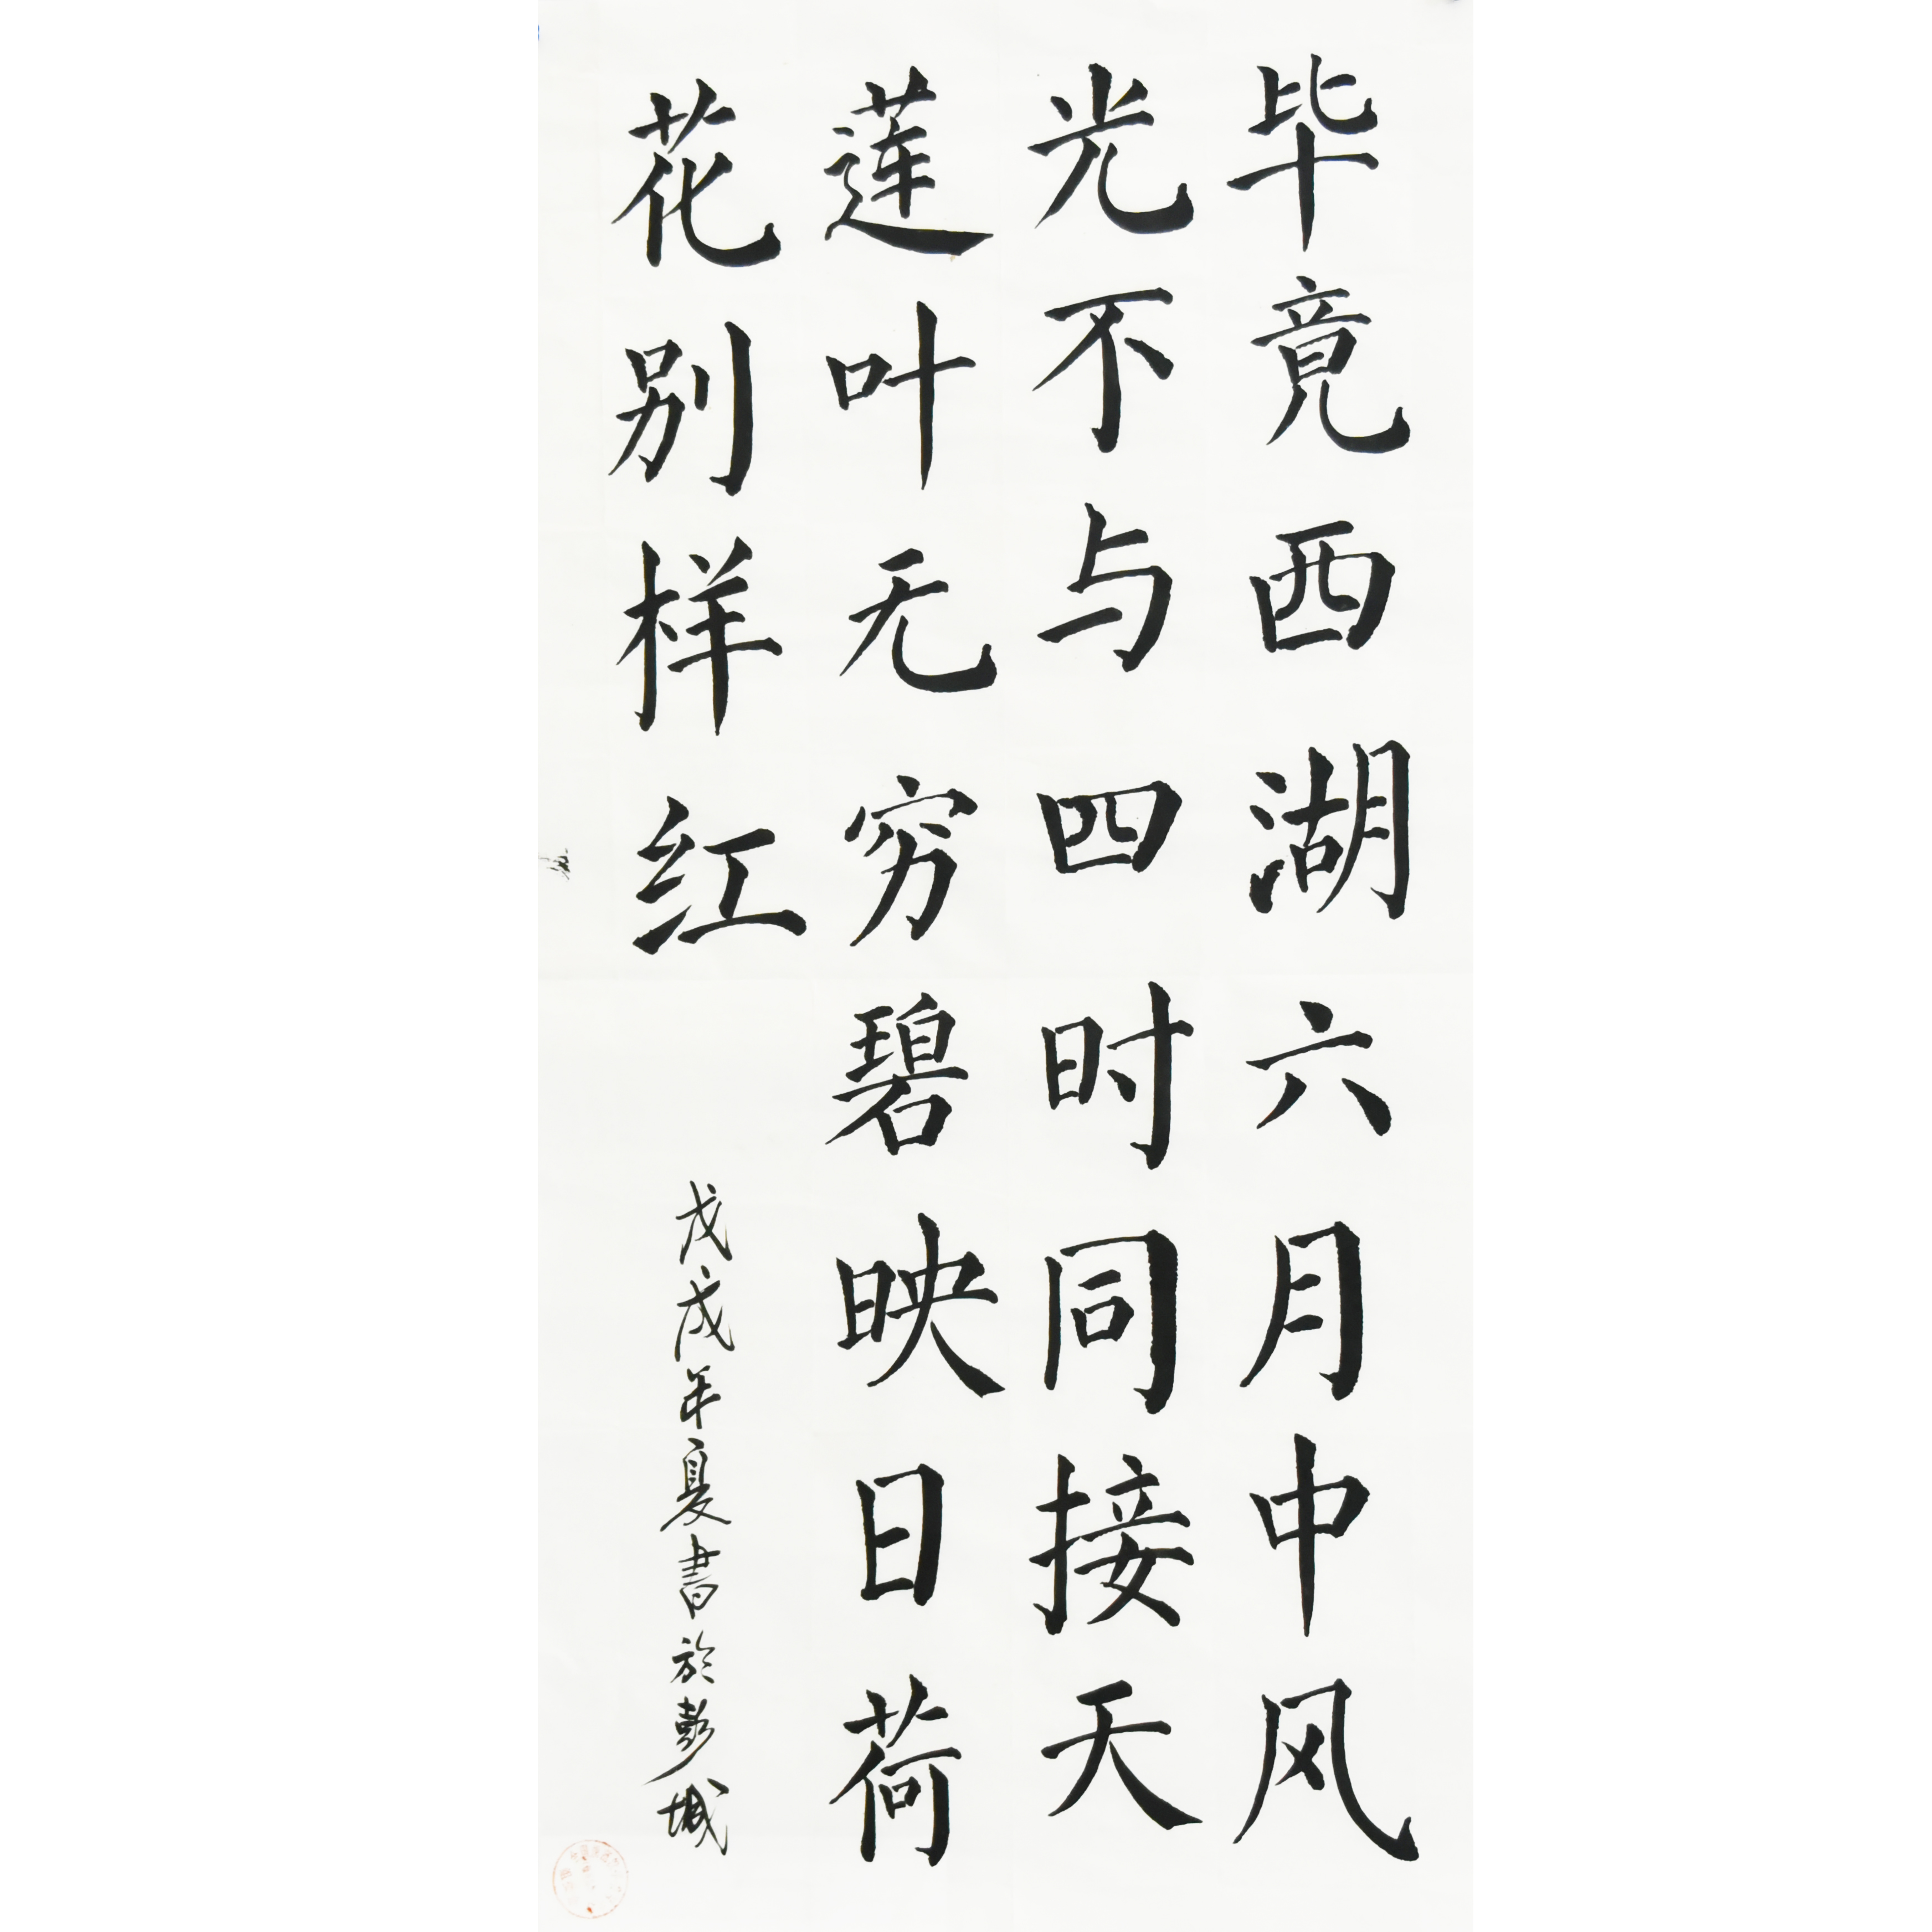 毕竟西湖六月中风
光不与四时同接天
莲叶无穷碧映日荷
花别样红
戊戌年夏書於彭城